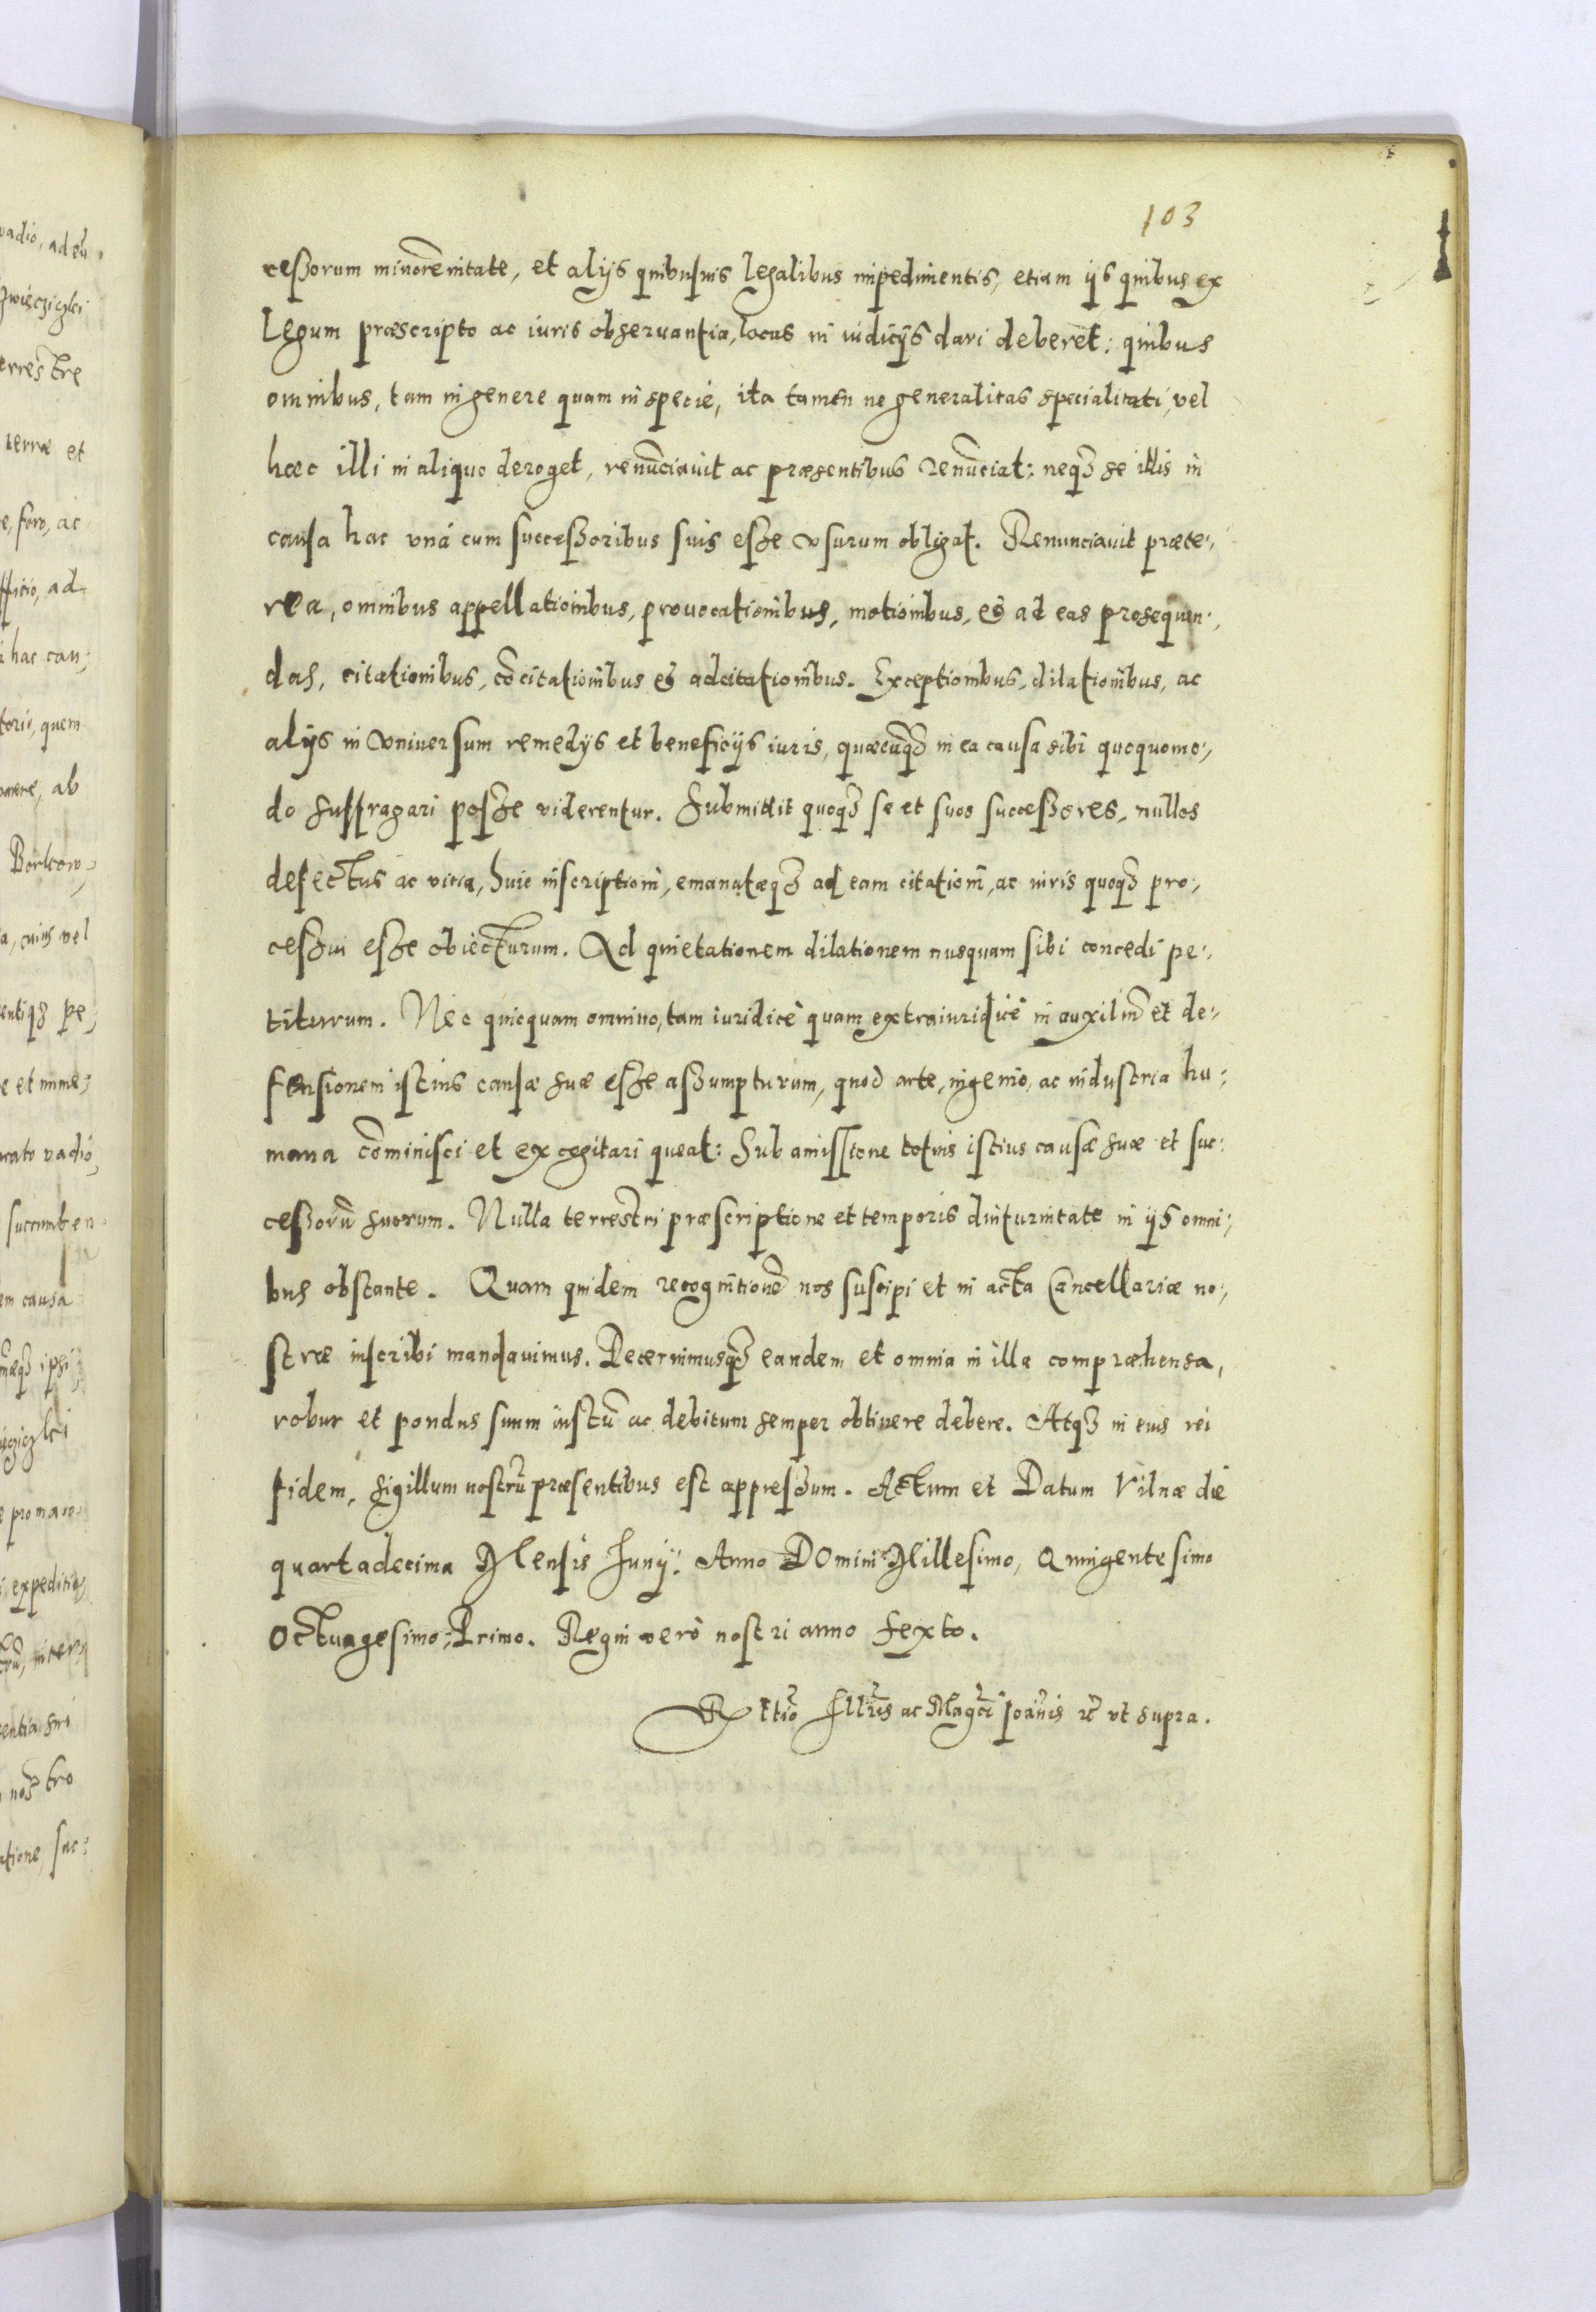 103
ceßorum minorēnitate, et alijs quibusuis legalibus impedimentis, etiam ijs quibus ex
Legum præscripto ac iuris obseruantia, locus in iudicijs dari deberet: quibus
omnibus, tam in genere quam in specie, ita tamen ne generalitas specialitati, vel
hæc illi in aliquo deroget, renūciauit ac præsentibus renūciat: neqꝫ se illis in
causa hac vná cum succeßoribus suis eſse vsurum obligat. Renunciauit præte-,
rea, omnibus appellationibus, prouocationibus, motionibus, & ad eas prosequen-,
das, citationibus, cōcitationibus & adcitationibus. Exceptionibus, dilationibus, ac
alijs in vniuersum remedijs et beneficijs iuris, quæcūqꝫ in ea causa sibi quoquomo-,
do suffragari poſse viderentur. Submittit quoqꝫ se et suos succeßores, nullos
defectus ac vitia, huic inscriptioni, emanatæqꝫ ad eam citationi, ac iuris quoqꝫ pro-,
ceſsui eſse obiecturum. Ad quietationem dilationem nusquam sibi concedi pe-,
titurum. Nec quicquam omnino, tam iuridicè quam extraiuridicè in auxiliū et de-,
fensionem istius causæ suæ eſse aßumpturum, quod arte, ingenio, ac industria hu-,
mana cōminisci et excogitari queat: Sub amiſsione totius istius causæ suæ et suc-,
ceßorū suorum. Nulla terrestri præscriptione et temporis diuturnitate in ijs omni-,
bus obstante. Quam quidem recognitionē nos suscipi et in acta Cancellariæ no-,
stræ inscribi mandauimus. Decernimusqꝫ eandem et omnia in illa compræhensa,
robur et pondus suum iustū ac debitum semper obtinere debere. Atqꝫ in eius rei
fidem, sigillum nostrū præsentibus est appreſsum. Actum et Datum Vilnæ die
quartadecima Mensis Junij. Anno Domini Millesimo, Quingentesimo
Octuagesimo, Primo. Regni verò nostri anno sexto.
Rltio Illris ac Magci Joānis rc vt supra.